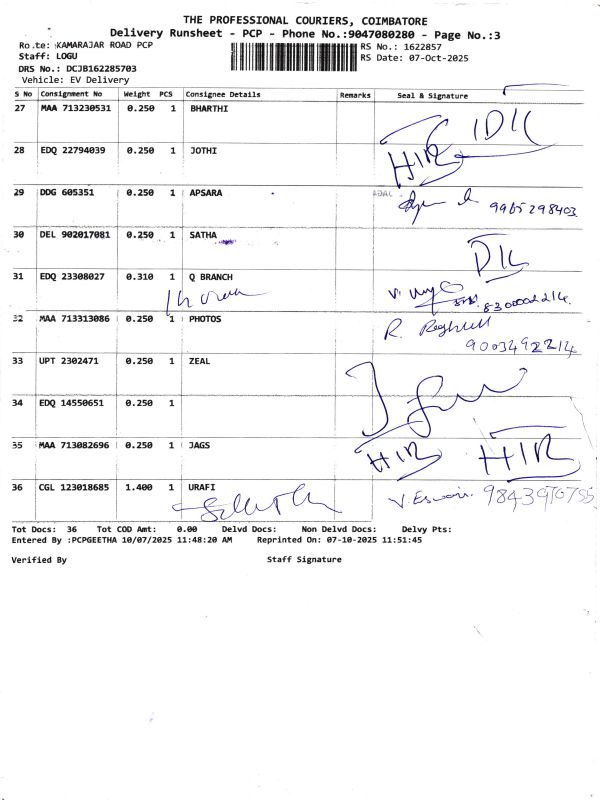 THE PROFESSIONAL COURIERS, COIMBATORE
Delivery Runsheet - PCP - Phone No.:9047080280 - Page No.:3
Route: KAMARAJAR ROAD PCP
RS No.: 1622857
Staff: LOGU
RS Date: 07-Oct-2025
DRS No.: DCJB162285703
Vehicle: EV Delivery
S No Consignment No Weight PCS Consignee Details Remarks Seal & Signature
27 MAA 713230531 0.250 1 BHARTHI
IDIC
28 EDQ 22794039 0.250 1 JOTHI
HIR
29 DDG 605351 0.250 1 APSARA
9965298403
30 DEL 902017081 0.250 1 SATHA
31 EDQ 23308027 0.310 1 Q BRANCH
8300002214.
32 MAA 713313086 0.250 1 PHOTOS
R.
9003492214
33 UPT 2302471 0.250 1 ZEAL
34 EDQ 14550651 0.250 1
35 MAA 713082696 0.250 1 JAGS
HIR HIR
36 CGL 123018685 1.400 1 URAFI
V. Eswari.
Tot Docs: 36 Tot COD Amt: 0.00 Delvd Docs: Non Delvd Docs: Delvy Pts:
Entered By :PCPGEETHA 10/07/2025 11:48:20 AM Reprinted On: 07-10-2025 11:51:45
Verified By Staff Signature